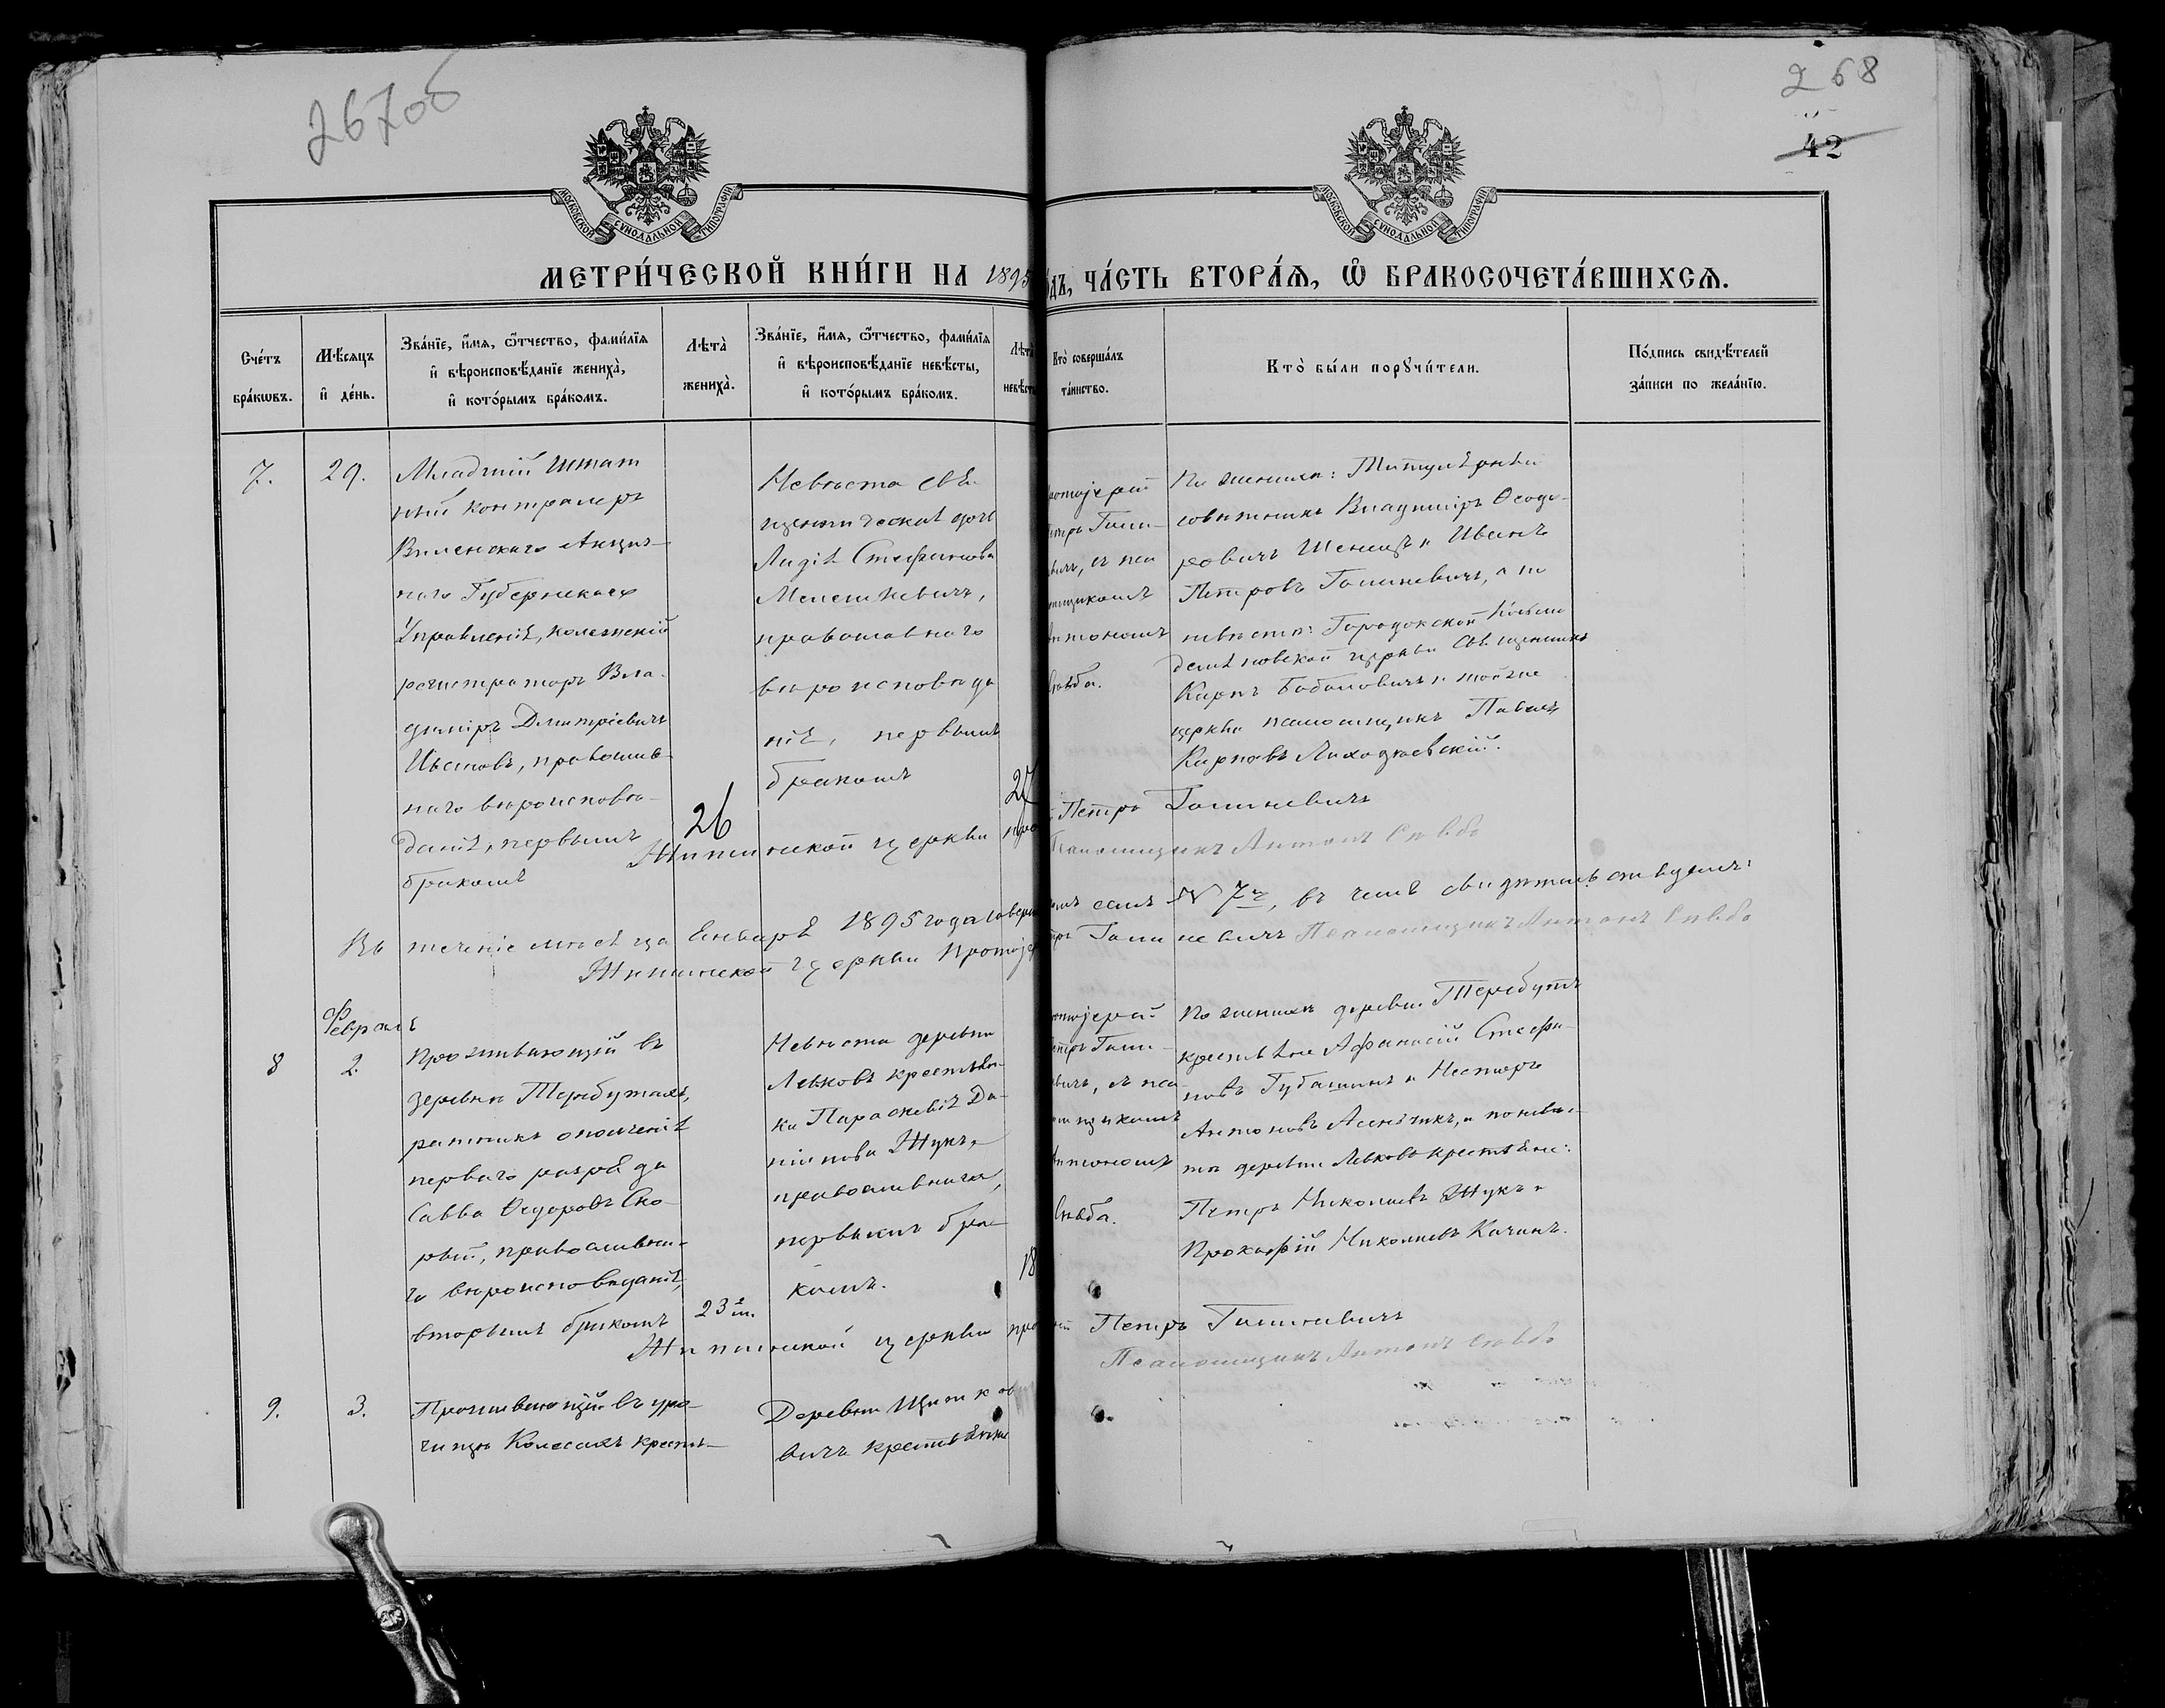 267об
268
42
МОСКОВСКОЙ СѴНОДАЛЬНОЙ ТИПОГРАФІИ
МОСКОВСКОЙ СѴНОДАЛЬНОЙ ТИПОГРАФІИ
МЕТРИ́ЧЕСКОЙ КНИ́ГИ НА 1895
ѻ́дъ, ЧА́СТЬ ВТОРА́Ѧ, Ѽ БРАКОСОЧЕТА́ВШИХСѦ.
Сче́тъ бра́кѡвъ.
Мѣ́сяцъ и҆ де́нь.
Зва́нїе, и҆́мѧ, ѻ҆́тчество, фами́лїѧ
и҆ вѣроисповѣ́данїе жениха̀,
и҆ кото́рымъ бра́комъ.
Лѣта̀
жениха̀.
Зва́нїе, и҆́мѧ, ѻ҆́тчество, фами́лїѧ
и҆ вѣроисповѣ́данїе невѣ́сты,
и҆ кото́рымъ бра́комъ.
Лѣта̀
невѣ́сты
Кто̀ соверша́лъ
та́инство.
Кто̀ бы́ли порꙋчи́тели.
По́дпись свидѣ́телей
за́писи по жела́нїю.
7.
29.
Младшій штат
ный контралеръ
Виленскаго Акциз-
наго Губернскаго
Управленія, колежскій
регистраторъ Вла-
диміръ Дмитріевичъ
Ивановъ, православ-
наго вѣроисповѣ-
данія, первымъ
бракомъ
26
Невѣста свя-
щенническая дочь
Лидія Стефанова
православнаго
вѣроисповѣда
нія, первымъ
бракомъ
27
ротоіерей
витъ, съ пса
омщикомъ
Антономъ
По женихѣ: Титулярный
совѣтникъ Владиміръ Ѳеодо-
ровичъ и Иванъ
Петровъ а по
невѣстѣ: Городокской Козьмо
деміяновской церкви Священникъ
Карпъ и той же
церкви псаломщикъ Павелъ
Карповъ
церкви про
Петръ
Псаломщикъ Антонъ
Въ теченіе мѣсяца Января 1895 года соверш
омъ семъ № 7й, въ чемъ свидѣтельствуемъ:
церкви Протоіер
Псаломщикъ Антонъ
Февраль
8
2.
Проживающій въ
деревнѣ Теребутахъ,
ратникъ ополченія
перваго разряда
Савва Ѳедоровъ Ско-
рый, православна-
го вѣроисповѣданія,
вторымъ бракомъ
23
Невѣста деревни
Левковъ крестьян-
ка Параскевія Да-
ніилова Жукъ,
православная,
первымъ бра-
комъ.
18
ротоіерей
вичъ, съ пса-
омщикомъ
Антономъ
По женихѣ деревни Теребутъ
крестьяне Афанасій Стефа-
новъ и Несторъ
Антоновъ и по невѣс-
тѣ деревни Левковъ крестьяне:
Петръ Николаевъ Жукъ и
Прокофій Николаевъ
церкви про
Петръ
Псаломщикъ Антонъ
9.
3.
Проживающій въ уро-
чищѣ Колесахъ кресть-
Деревни
вичъ крестьянка